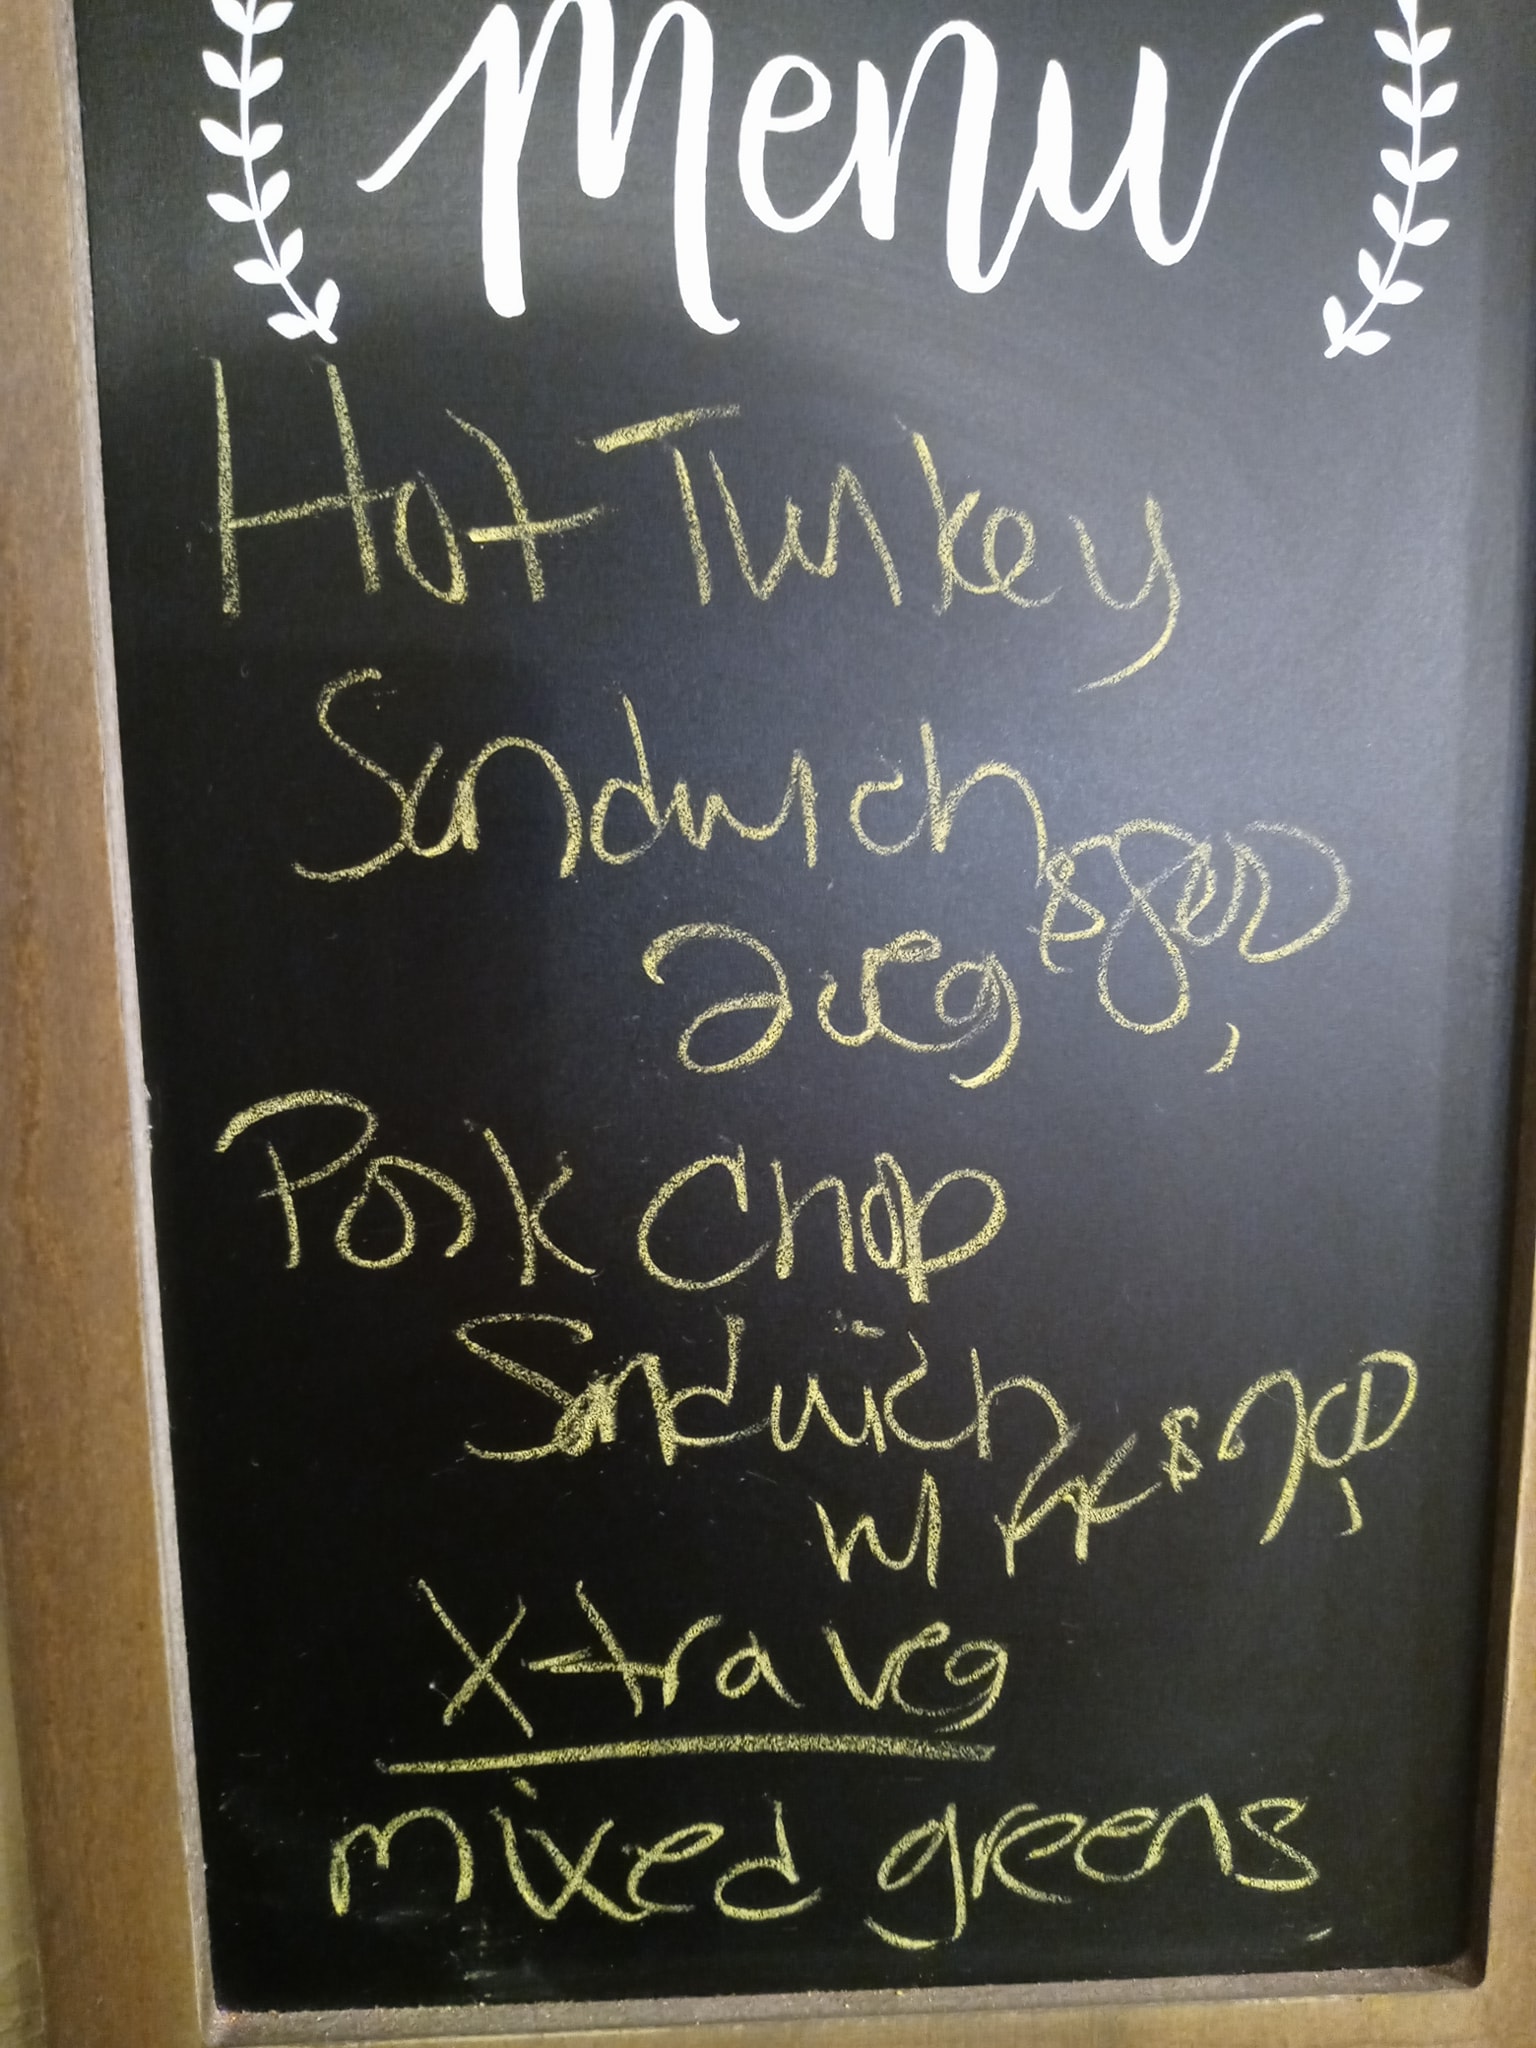 Menu
Hot Turkey
Sandwich $8.00
2 veg
Pork Chop
Sandwich
w/ FF $7.00
X-tra veg
mixed greens